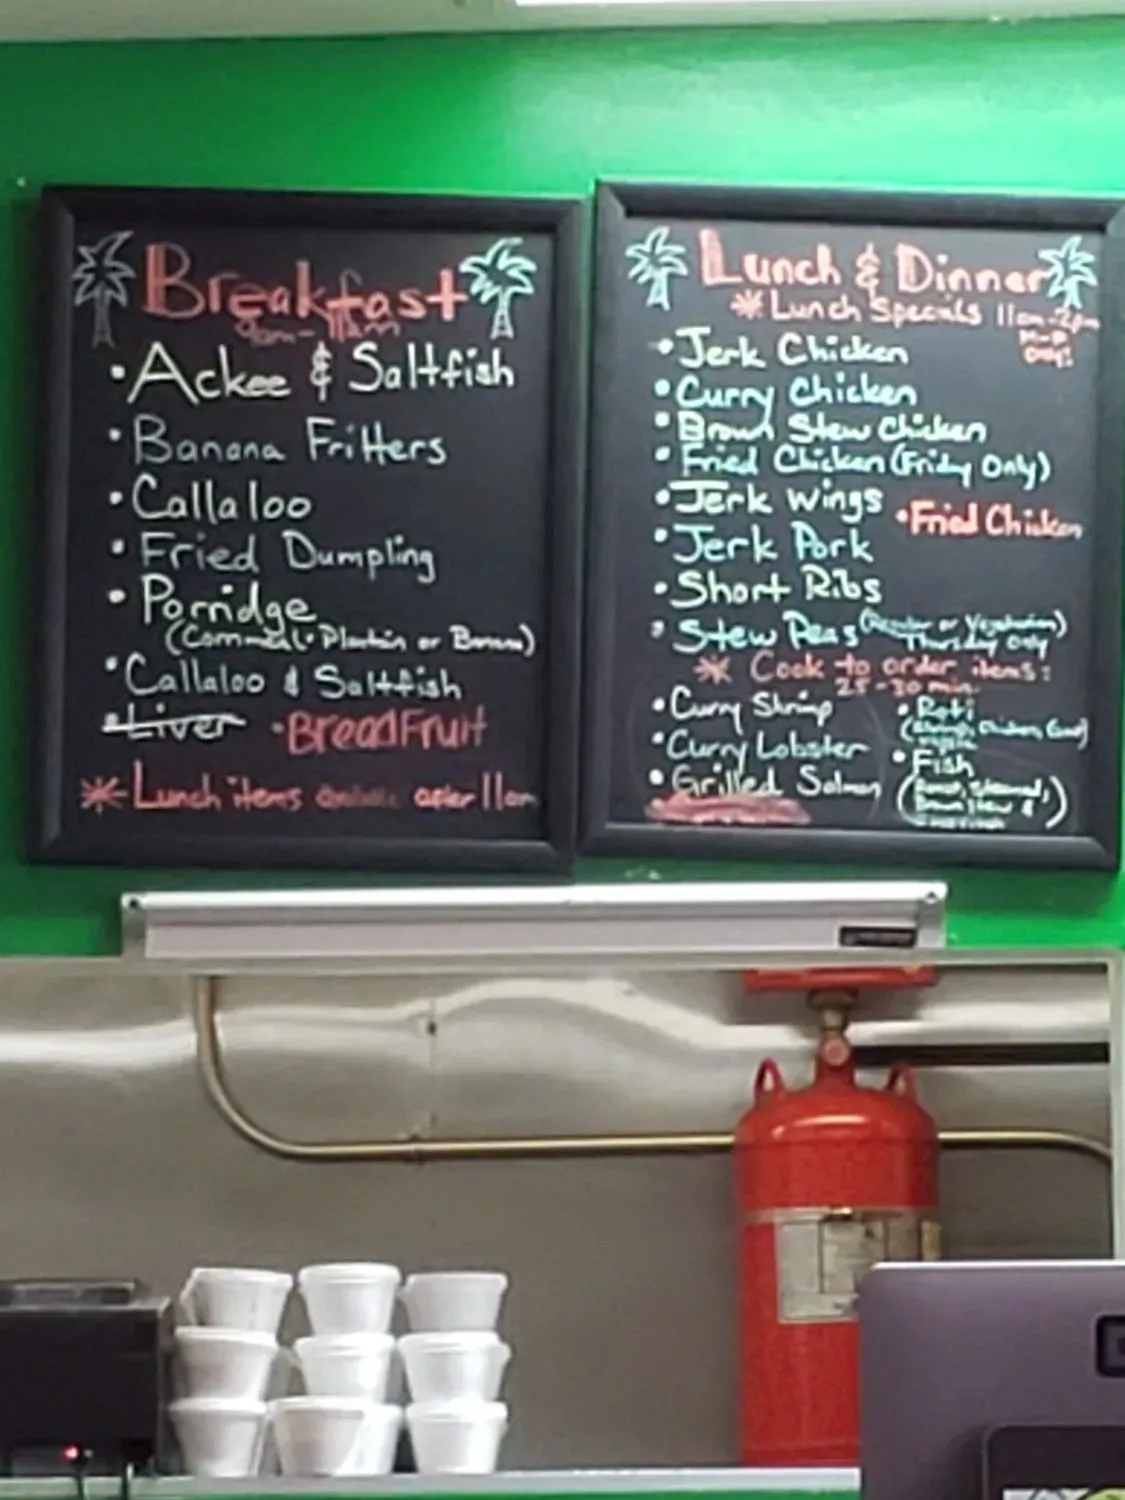 Breakfast
9am-11am
• Ackee & Saltfish
• Banana Fritters
• Callaloo
• Fried Dumpling
• Porridge
(Cornmeal • Plantain or Banana)
• Callaloo & Saltfish
• Liver • BreadFruit
* Lunch items after 11am
Lunch & Dinner
* Lunch Specials 11am-2pm
only!
• Jerk Chicken
• Curry Chicken
• Brown Stew Chicken
• Fried Chicken (Friday Only)
• Jerk Wings
• Fried Chicken
• Jerk Pork
• Short Ribs
• Stew Peas (Regular or Vegetarian)
Thursday Only
* Cook to order items:
25-30 min.
• Curry Shrimp
• Curry Lobster
• Grilled Salmon
• Roti
(Shrimp, Chicken, Goat)
• Fish
Steamed,
Brown Stew &